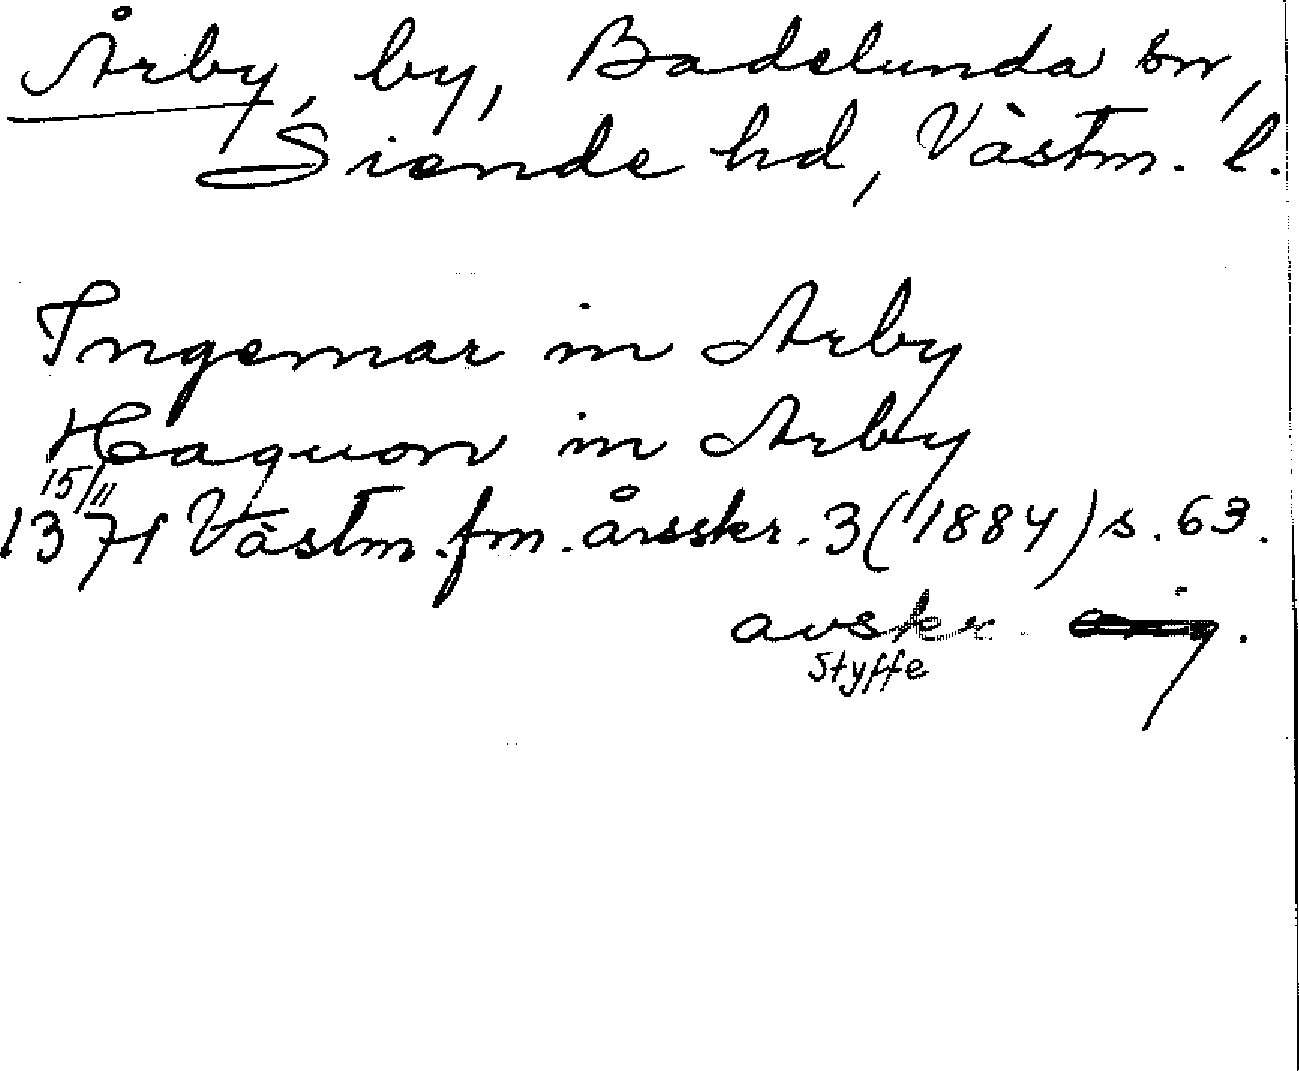 Årby, by, Badelunda sn,
Siende hd, Västm. l.
Ingemar in Arby
Haquon in Arby
15/11
1371 Västm. fm. årsskr. 3 (1884) s. 63.
avskr.
Styffe